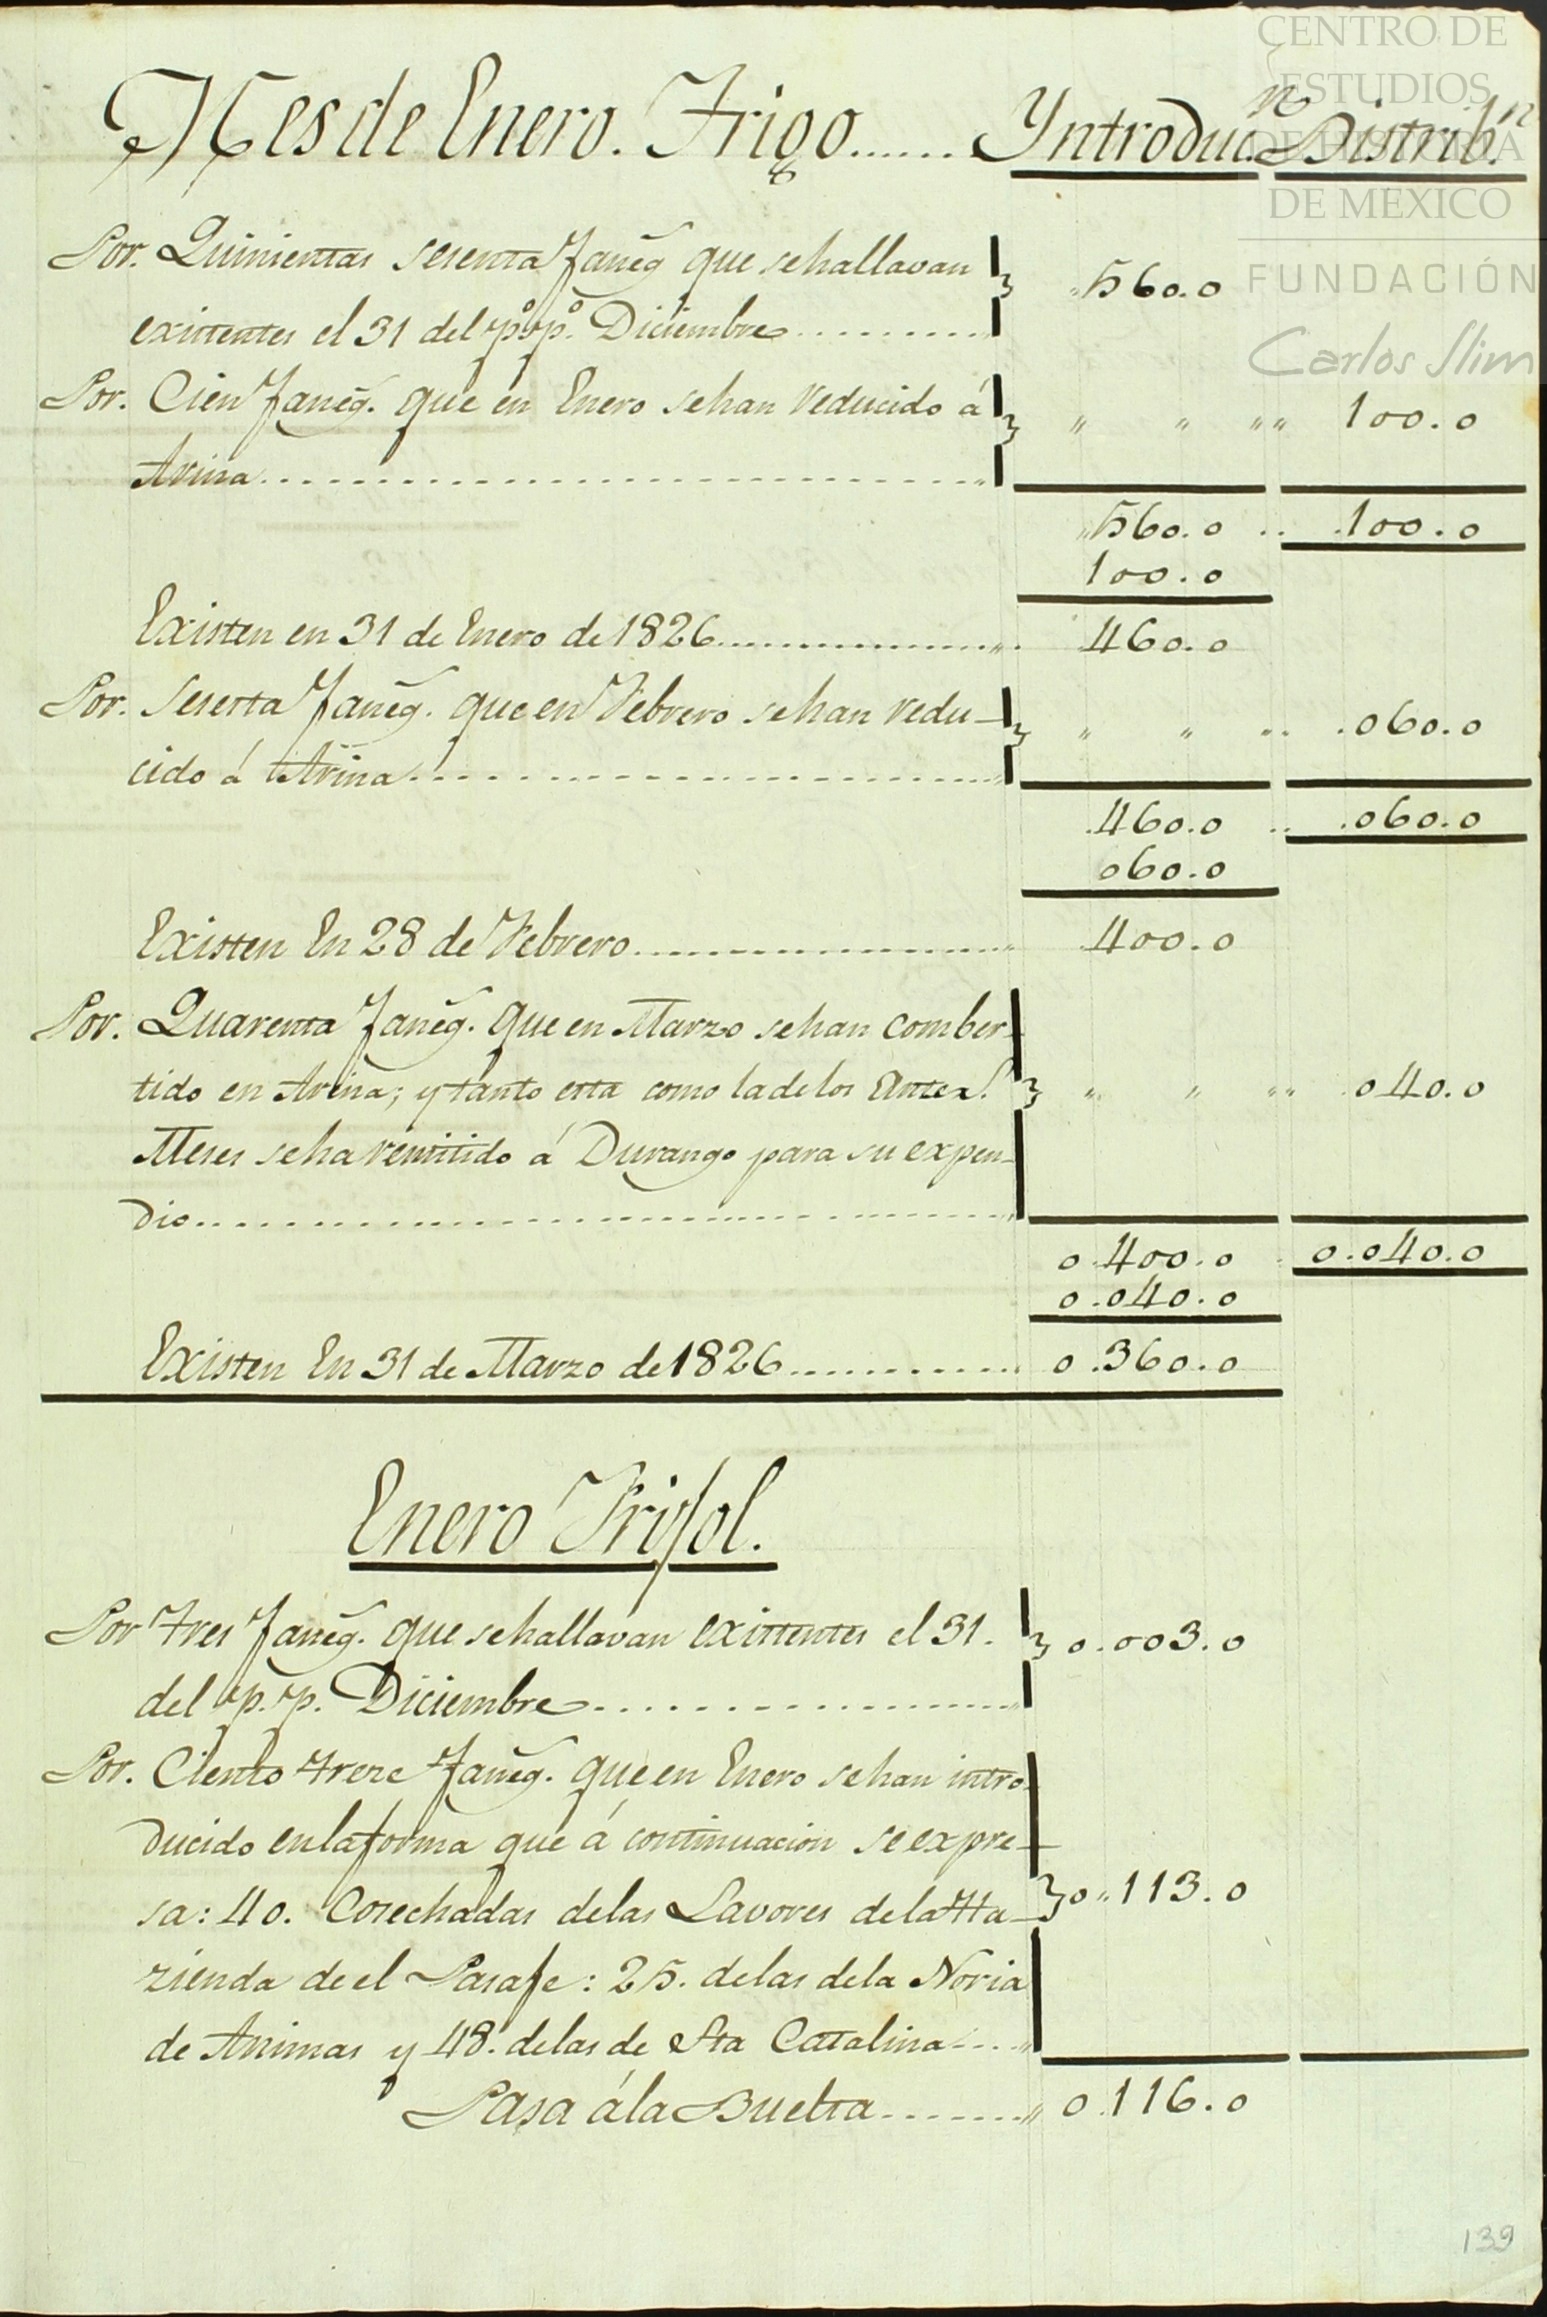 CENTRO DE
ESTUDIOS
DE HISTORIA
DE MEXICO
FUNDACIÓN
Carlos Slim
Mes de Enero. Trigo....... Yntroduc.n Distrib.n
Por. Quinientas sesenta faneg que se hallavan
existentes el 31 del p.o p.o Diciembre............ 560.0
Por. Cien faneg. que en Enero se han reducido á
Arina.............................. " " "" 100.0
560.0 .. .100.0
100.0
Existen en 31 de Enero de 1826.................. 460.0
Por. Seserta faneg. que en Febrero se han redu-
cido á Arina.............................. " " .. .060.0
.460.0 .. .060.0
060.0
Existen En 28 de Febrero.................. 400.0
Por. Quarenta faneg. que en Marzo se han comber-
tido en Arina; y tanto esta como la de los Anter.s
Meses se ha remitido á Durango para su expen- " " "" 040.0
dio..............................
0.400.0 . 0.040.0
0.040.0
Existen En 31 de Marzo de 1826............ 0.360.0
Enero Frisol.
Por tres faneg. que se hallavan existentes el 31. 0.003.0
del p. p. Diciembre..................
Por. Ciento treze faneg. que en Enero se han intro-
ducido en la forma que á continuacion se expre-
sa: 40. Cosechadas de las Lavores de la Ha- 0.113.0
zienda de el Pasaje: 25. de las de la Noria
de Animas y 48. de las de Sta Catalina....
Pasa á la Buelta....... 0.116.0
139